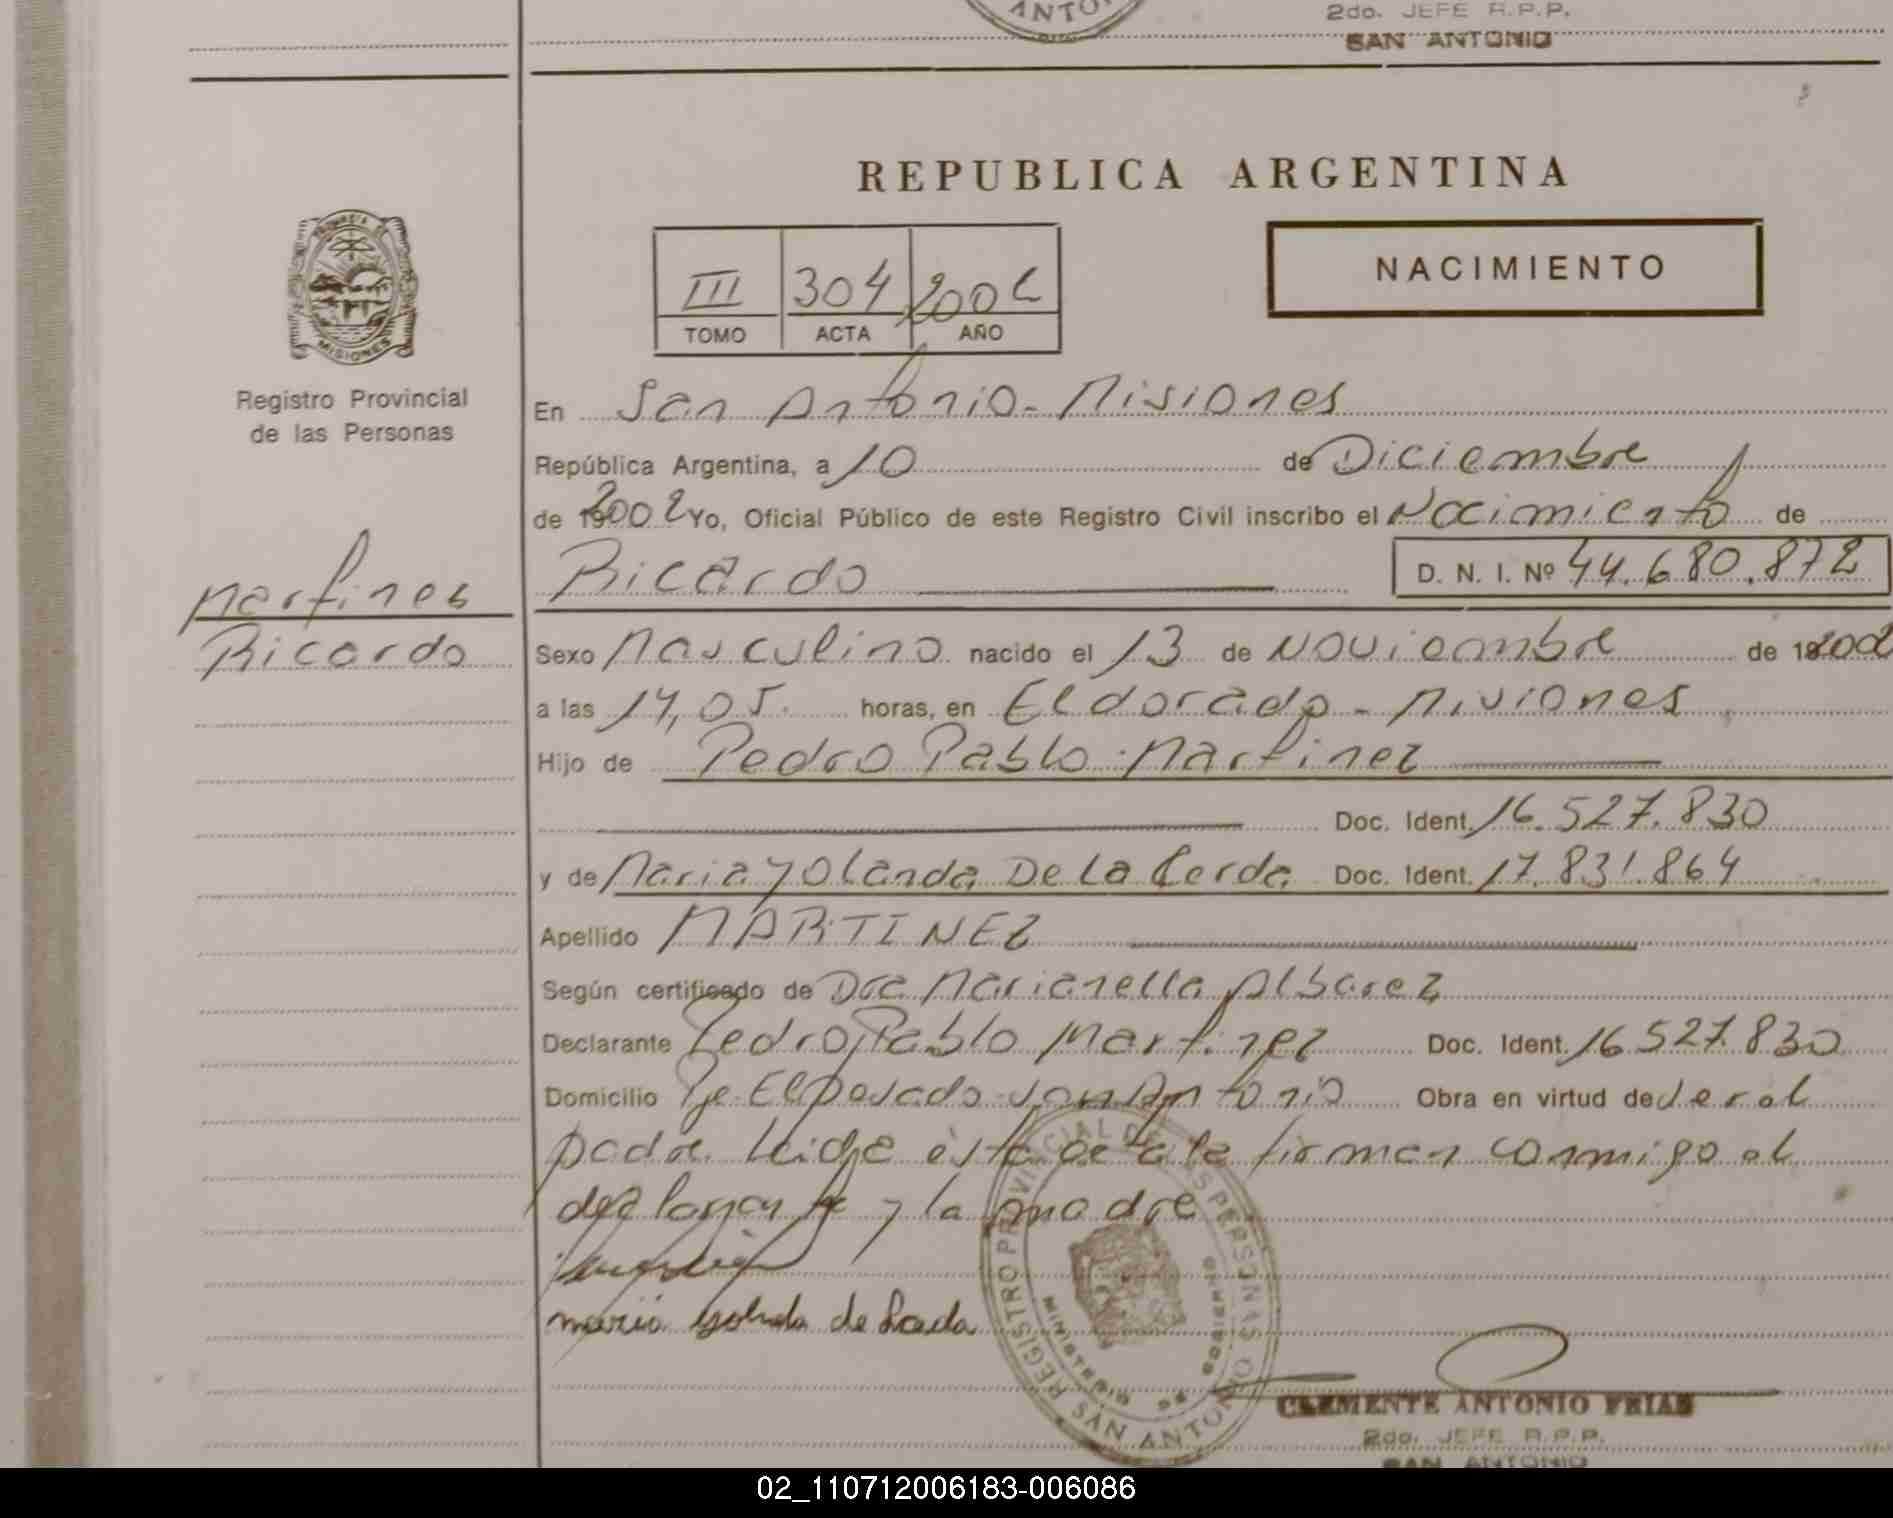 ANTO
2do. JEFE R.P.P.
SAN ANTONIO
REPUBLICA ARGENTINA
PROVINCIA DE
MISIONES
Registro Provincial
de las Personas
III 304 2002
TOMO ACTA AÑO
NACIMIENTO
En San Antonio - Misiones
República Argentina, a 10 de Diciembre
de 192002 Yo, Oficial Público de este Registro Civil inscribo el Nacimiento de
Martines
Ricardo
Ricardo D. N. I. Nº 44.680.872
Sexo Masculino nacido el 13 de Noviembre de 192002
a las 14,05. horas, en Eldorado - Misiones
Hijo de Pedro Pablo Martinez
Doc. Ident. 16.527.830
y de Maria Yolanda De La Cerda Doc. Ident. 17.831.864
Apellido MARTINEZ
Según certificado de Dra Marianella Albarez
Declarante Pedro Pablo Martinez Doc. Ident. 16527.830
Domicilio Pje El posado San Antonio Obra en virtud de ser el
padre. Leida esta acta la firman conmigo el
declarante y la madre
maria yolanda de la cerda
REGISTRO PROVINCIAL DE LAS PERSONAS
MINISTERIO DE GOBIERNO
SAN ANTONIO
CLEMENTE ANTONIO FRIAS
2do. JEFE R.P.P.
SAN ANTONIO
02_110712006183-006086